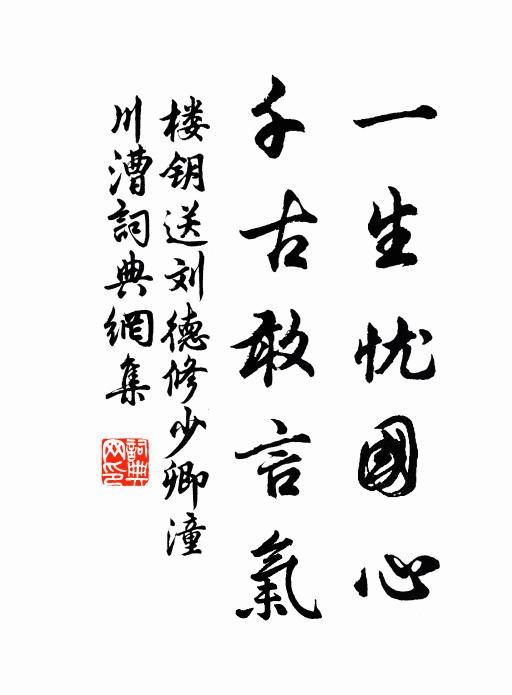 一生忧國心
千古敢言氣
楼钥送刘德修少卿潼
川漕詞典網集
詞典
网印